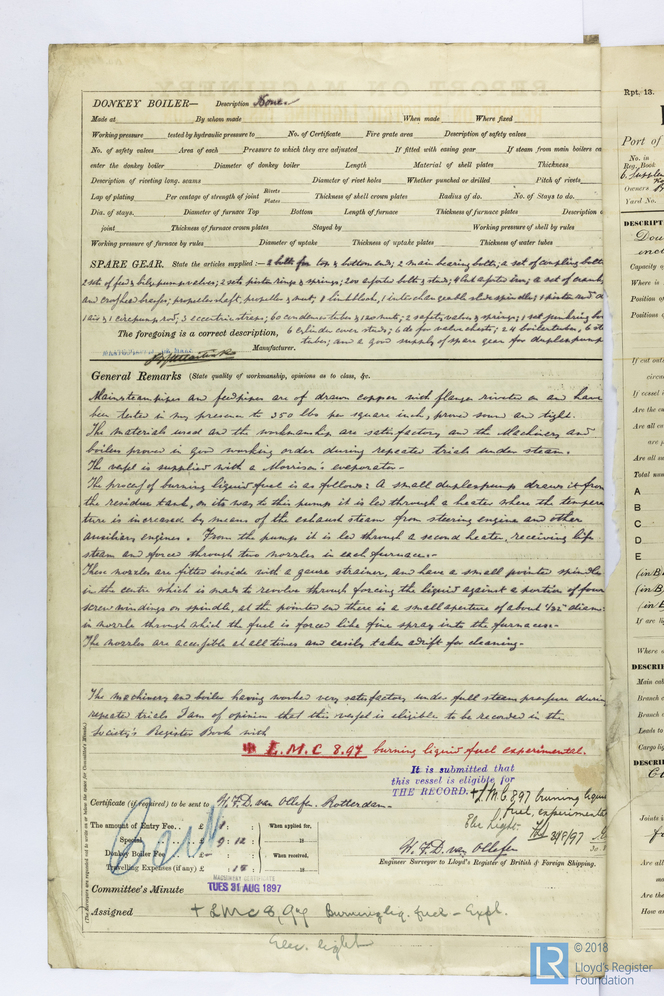 DONKEY BOILER— Description None
Made at By whom made When made Where fixed
Working pressure tested by hydraulic pressure to No. of Certificate Fire grate area Description of safety valves
No. of safety valves Area of each Pressure to which they are adjusted If fitted with easing gear If steam from main boilers ca
enter the donkey boiler Diameter of donkey boiler Length Material of shell plates Thickness
Description of riveting long. seams Diameter of rivet holes Whether punched or drilled Pitch of rivets
Lap of plating Per centage of strength of joint Rivets Plates Thickness of shell crown plates Radius of do. No. of Stays to do.
Dia. of stays. Diameter of furnace Top Bottom Length of furnace Thickness of furnace plates Description o
joint Thickness of furnace crown plates Stayed by Working pressure of shell by rules
Working pressure of furnace by rules Diameter of uptake Thickness of uptake plates Thickness of water tubes
SPARE GEAR. State the articles supplied:— 2 bolts for top & bottom end; 2 main bearing bolts; a set of coupling bolts
2 sets of feed & bilge pump valves; 2 sets piston rings & springs; 200 assorted bolts & studs; assorted iron; a set of crank
and crosshead brasses; propeller shaft, propeller & nut; 1 link block, 1 interchangeable slide spindle & piston rod
1 air & 1 circ. pump rod; 3 eccentric straps; 60 condenser tubes & 120 nuts; 2 safety valve springs; 1 set
The foregoing is a correct description, 6 cylinder cover studs; 6 do for valve chests; 24 boiler tubes, 6
tubes; and a good supply of spare gear for duplex pump
Manufacturer.
General Remarks (State quality of workmanship, opinions as to class, &c.
Main steam pipes and feed pipes are of drawn copper with flanges riveted on and have
been tested in my presence to 350 lbs per square inch, proved sound and tight.
The materials used and the workmanship are satisfactory and the Machinery and
boilers proved in good working order during repeated trials under steam.
The vessel is supplied with a Morrison's evaporator.
The process of burning liquid fuel is as follows: A small duplex pump draws it from
the residue tank, on its way to this pump it is led through a heater where the tempera
ture is increased by means of the exhaust steam from steering engine and other
auxiliary engines. From the pump it is led through a second heater, receiving
steam and forced through two nozzles in each furnace.
These nozzles are fitted inside with a gauze strainer, and have a small pointed spindle
in the centre which is made to revolve through forcing the liquid against a portion of four
screw windings on spindle, at the pointed end there is a small aperture of about 1/32" diam
in nozzle through which the fuel is forced like fine spray into the furnaces.
The nozzles are accessible at all times and easily taken adrift for cleaning.
The machinery and boiler having worked very satisfactory under full steam pressure during
repeated trials I am of opinion that this vessel is eligible to be recorded in the
Society's Register Book with
✠ L.M.C 8.97 burning liquid fuel experimental.
It is submitted that
this vessel is eligible for
THE RECORD. + L.M.C 8 97 burning liquid
fuel, experimental
Elec light. 31/8/97
Certificate (if required) to be sent to W. F. D. van Ollefen. Rotterdam.
The amount of Entry Fee . . £ : : When applied for.
Special . . . £ 9 : 12 : 18
Donkey Boiler Fee . . £ : : When received.
Travelling Expenses (if any) £ : 15 : 18
W. F. D. van Ollefen
Engineer Surveyor to Lloyd's Register of British & Foreign Shipping.
MACHINERY CERTIFICATE
Committee's Minute TUES 31 AUG 1897
Assigned + LMC 8,97 Burning liq. fuel - Expl.
Elec. light
Rpt. 13.
Port of
No. in
Reg. Book
Owners
Yard No.
DESCRIPT
Capacity of
Where is
Position of
Positions of
If cut out
If vessel i
Are the cu
Are all cu
are p
Are all su
Total num
A
B
C
D
E
(in B
(in B
(in E
If are lig
Where
DESCRIP
Main cab
Branch c
Branch c
Leads to
Cargo lig
DESCRI
Joints i
Are all
ma
Are th
How a
LR
© 2018
Lloyd's Register
Foundation